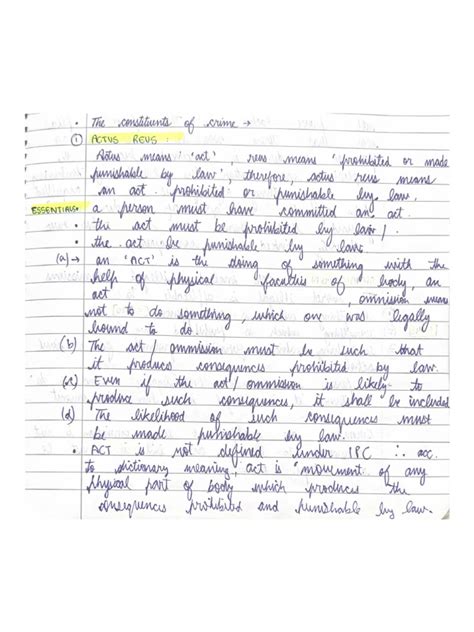 • The constituents of crime →
① ACTUS REUS :
Actus means 'act', reus means 'prohibited or made
punishable by law' therefore, actus reus means
an act prohibited or punishable by law.
ESSENTIALS • a person must have committed an act.
• the act must be prohibited by law/
• the act be punishable by law.
(a) → an 'ACT' is the doing of something with the
help of physical faculties of body, an
act , ommission means
not to do something, which one was legally
bound to do.
(b) The act/ ommission must be such that
it produces consequences prohibited by law.
(c) Even if the act/ ommission is likely to
produce such consequences, it shall be included
(d) The likelihood of such consequences must
be made punishable by law.
• ACT is not defined under IPC ∴ acc.
to dictionary meaning, act is "movement of any
physical part of body which produces the
consequences prohibited and punishable by law.